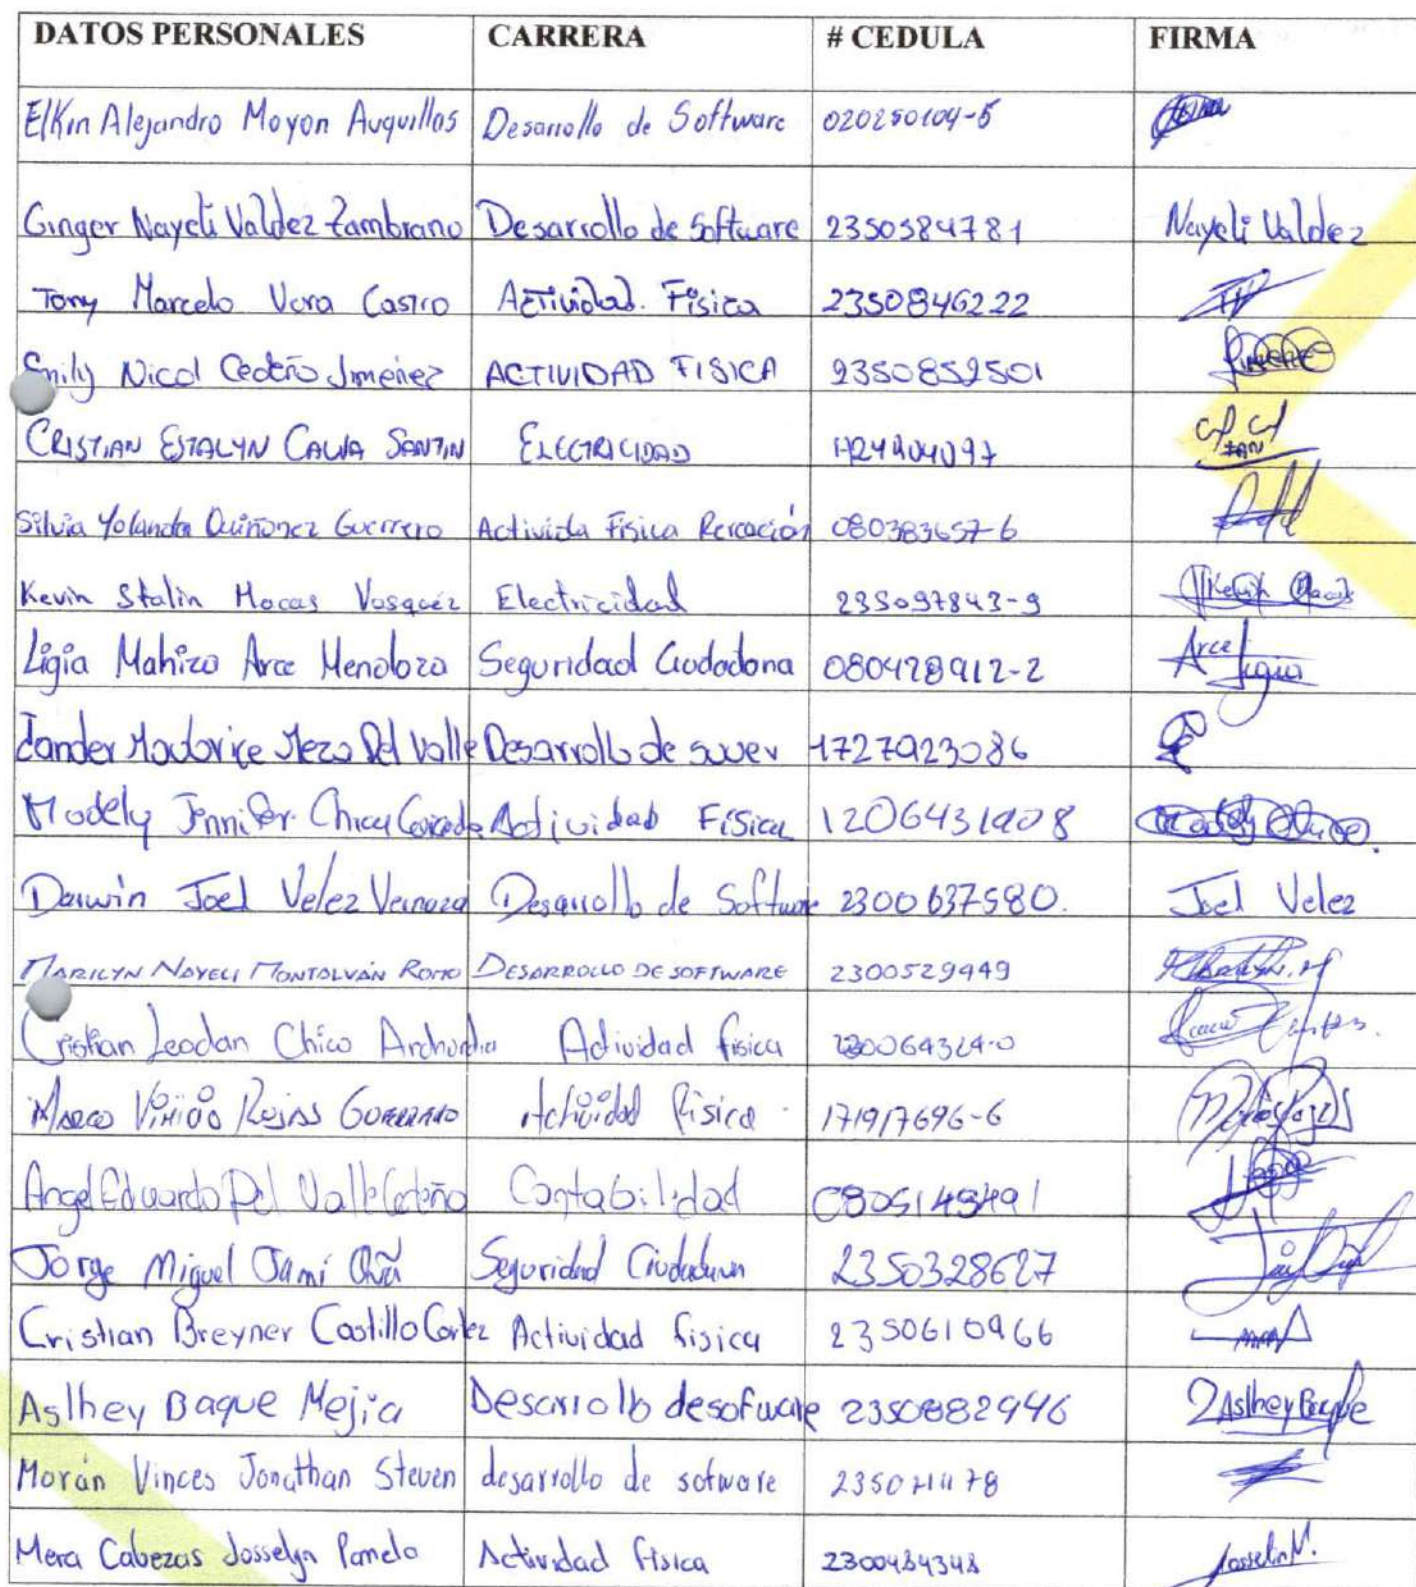 DATOS PERSONALES CARRERA # CEDULA FIRMA
Elkin Alejandro Moyon Auquillas Desarrollo de Software 020250104-5
Ginger Nayeli Valdez Zambrano Desarrollo de Software 2350584781 Nayeli Valdez
Tony Marcelo Vera Castro Actividad. Física 2350846222
Emily Nicol Cedeño Jimenez ACTIVIDAD FISICA 2350852501
CRISTIAN ESTALYN CALVA SANTIN ELECTRICIDAD
Silvia Yolanda Quiñonez Guerrero Activida Fisica Recreación 080383657-6
Kevin Stalin Macas Vasquez Electricidad 235097843-9
Ligia Mahiza Arce Mendoza Seguridad Ciudadana 080428912-2 Arce Ligia
Meza Del Valle Desarrollo de 1727923086
Jennifer Actividad Física
Darwin Joel Velez Vernaza Desarrollo de Software 2300637580. Joel Velez
MARILYN NAYELI MONTALVÁN ROMO DESARROLLO DE SOFTWARE 2300529449
Cristian Leodan Chico Actividad física
MARCO VINICIO ROJAS GUERRERO Actividad física 171917696-6
Angel Eduardo Del Valle Cedeño Contabilidad
Jorge Miguel Jami Seguridad Ciudadana 2350328627
Cristian Breyner Castillo Cortez Actividad física 2350610966
Aslhey Baque Mejia Desarrollo desofware 2350882946 Aslhey Baque
Morán Vinces Jonathan Steven desarrollo de sofware
Mera Cabezas Josselyn Pamela Actividad física 2300484348